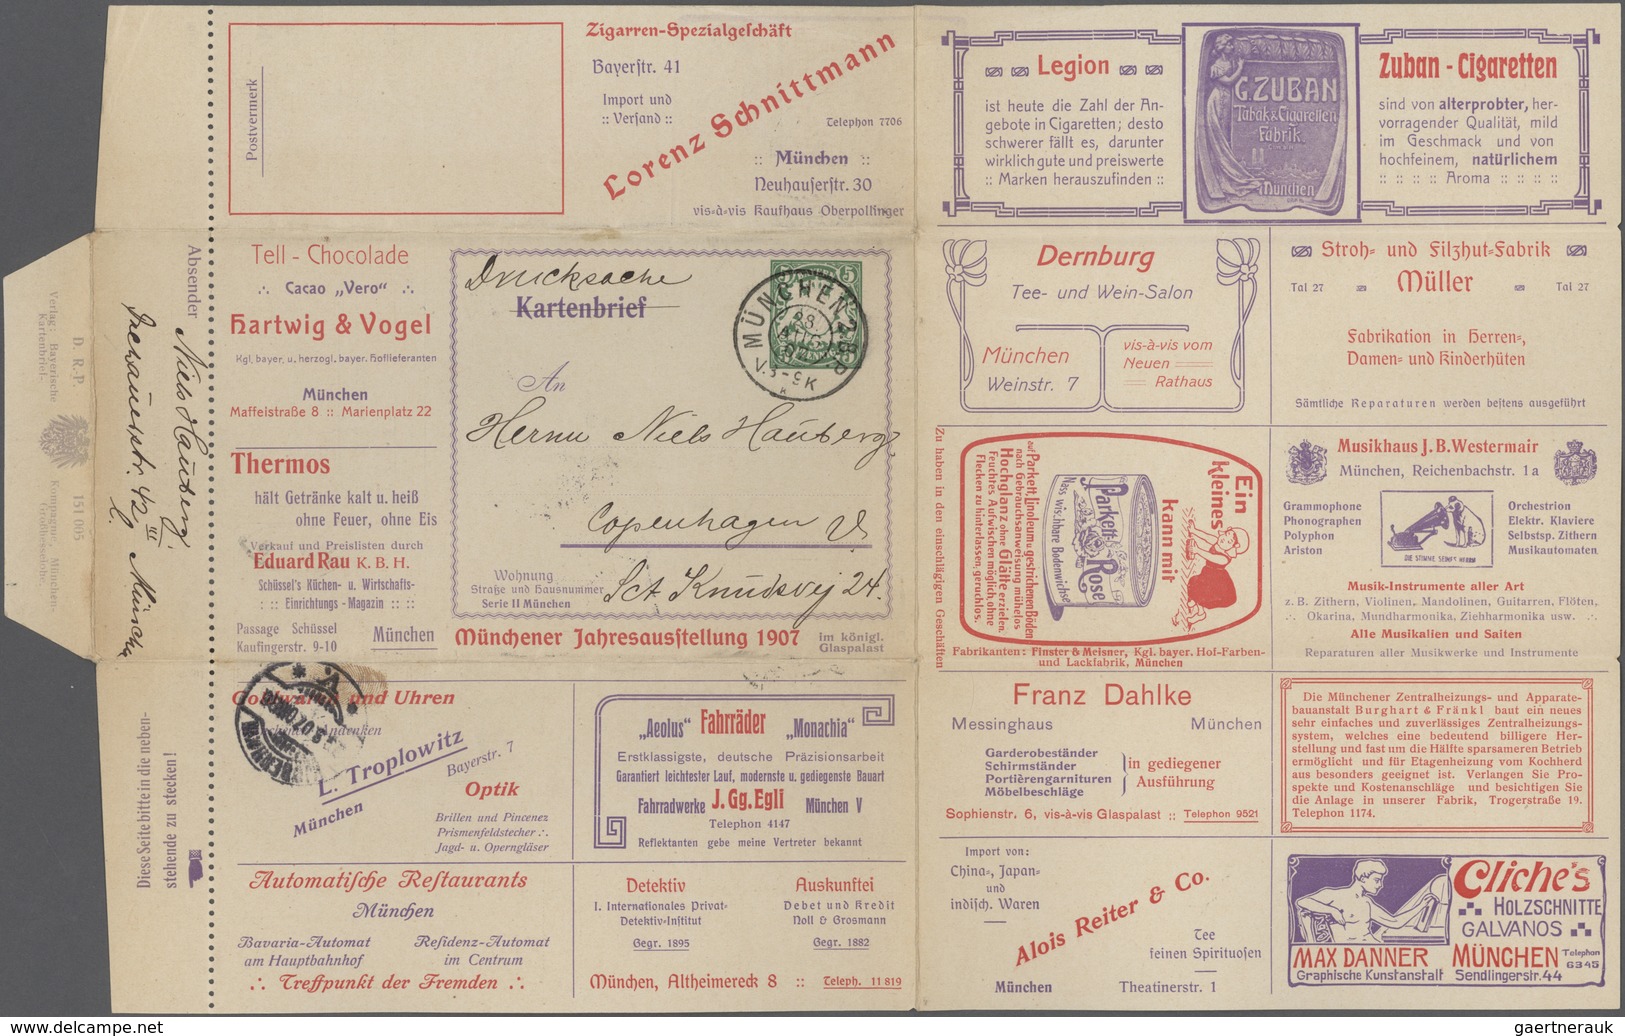 Postvermerk
Zigarren-Spezialgeschäft
Bayerstr. 41
Import und
:: Versand ::
Lorenz Schnittmann
Telephon 7706
:: München ::
Neuhauserstr. 30
vis-à-vis Kaufhaus Oberpollinger
Legion
ist heute die Zahl der An-
gebote in Cigaretten; desto
schwerer fällt es, darunter
wirklich gute und preiswerte
:: Marken herauszufinden ::
G. ZUBAN
Tabak & Cigaretten
Fabrik
München
Zuban - Cigaretten
sind von alterprobter, her-
vorragender Qualität, mild
im Geschmack und von
hochfeinem, natürlichem
:: :: :: Aroma :: :: ::
Verlag: Bayerische
Kartenbrief-
D. R.-P.
151 005
Kompagnie, München-
Großhesselohe.
Absender
Niels Hauberg
Dachauerstr. 42 III
München
Diese Seite bitte in die neben-
stehende zu stecken!
Tell - Chocolade
∴ Cacao „Vero“ ∴
Hartwig & Vogel
Kgl. bayer. u. herzogl. bayer. Hoflieferanten
München
Maffeistraße 8 :: Marienplatz 22
Thermos
hält Getränke kalt u. heiß
ohne Feuer, ohne Eis
Verkauf und Preislisten durch
Eduard Rau K. B. H.
Schüssel's Küchen- u. Wirtschafts-
: :: Einrichtungs - Magazin :: ::
Passage Schüssel
Kaufingerstr. 9-10
München
Drucksache
Kartenbrief
5
5
MÜNCHEN 2 B.P.
28.
AUG
07
V. 8-9 K
An
Herrn Niels Hauberg
Copenhagen V.
Wohnung
Straße und Hausnummer
Serie II München
Sct. Knudsvej 24.
Münchener Jahresausstellung 1907
im königl.
Glaspalast
Dernburg
Tee- und Wein-Salon
München
Weinstr. 7
vis-à-vis vom
Neuen
Rathaus
Stroh- und Filzhut-Fabrik
Tal 27
Müller
Tal 27
Fabrikation in Herren-,
Damen- und Kinderhüten
Sämtliche Reparaturen werden bestens ausgeführt
Zu haben in den einschlägigen Geschäften
Ein
kleines
kann mit
Parkett-Rose
Nass wischbare Bodenwichse
auf Parkett, Linoleum u. gestrichenen Böden
nach Gebrauchsanweisung mühelos
Hochglanz ohne Glätte erzielen.
Feuchtes Aufwischen möglich, ohne
Flecken zu hinterlassen, geruchlos.
Fabrikanten: Finster & Meisner, Kgl. bayer. Hof-Farben-
und Lackfabrik, München
Musikhaus J. B. Westermair
München, Reichenbachstr. 1a
Grammophone
Phonographen
Polyphon
Ariston
DIE STIMME SEINES HERRN
Orchestrion
Elektr. Klaviere
Selbstsp. Zithern
Musikautomaten
Musik-Instrumente aller Art
z. B. Zithern, Violinen, Mandolinen, Guitarren, Flöten,
∴ Okarina, Mundharmonika, Ziehharmonika usw. ∴
Alle Musikalien und Saiten
Reparaturen aller Musikwerke und Instrumente
Goldwaren und Uhren
Andenken
L. Troplowitz
Bayerstr. 7
München
Optik
Brillen und Pincenez
Prismenfeldstecher ∴
Jagd- u. Operngläser
„Aeolus“ Fahrräder „Monachia“
Erstklassigste, deutsche Präzisionsarbeit
Garantiert leichtester Lauf, modernste u. gediegenste Bauart
Fahrradwerke J. Gg. Egli München V
Telephon 4147
Reflektanten gebe meine Vertreter bekannt
Franz Dahlke
Messinghaus
München
Garderobeständer
Schirmständer
Portièrengarnituren
Möbelbeschläge
in gediegener
Ausführung
Sophienstr. 6, vis-à-vis Glaspalast :: Telephon 9521
Die Münchener Zentralheizungs- und Apparate-
bauanstalt Burghart & Fränkl baut ein neues
sehr einfaches und zuverlässiges Zentralheizungs-
system, welches eine bedeutend billigere Her-
stellung und fast um die Hälfte sparsameren Betrieb
ermöglicht und für Etagenheizung vom Kochherd
aus besonders geeignet ist. Verlangen Sie Pro-
spekte und Kostenanschläge und besichtigen Sie
die Anlage in unserer Fabrik, Trogerstraße 19.
Telephon 1174.
Automatische Restaurants
München
Bavaria-Automat
am Hauptbahnhof
Residenz-Automat
im Centrum
∴ Treffpunkt der Fremden ∴
Detektiv
I. Internationales Privat-
Detektiv-Institut
Gegr. 1895
Auskunftei
Debet und Kredit
Noll & Grosmann
Gegr. 1882
München, Altheimereck 8 :: Teleph. 11 819
Import von:
China-, Japan-
und
indisch. Waren
Alois Reiter & Co.
Tee
feinen Spirituosen
München
Theatinerstr. 1
Cliche's
HOLZSCHNITTE
GALVANOS
MAX DANNER
MÜNCHEN
Telephon
6345
Graphische Kunstanstalt
Sendlingerstr. 44
gaertnerauk @ delcampe.net